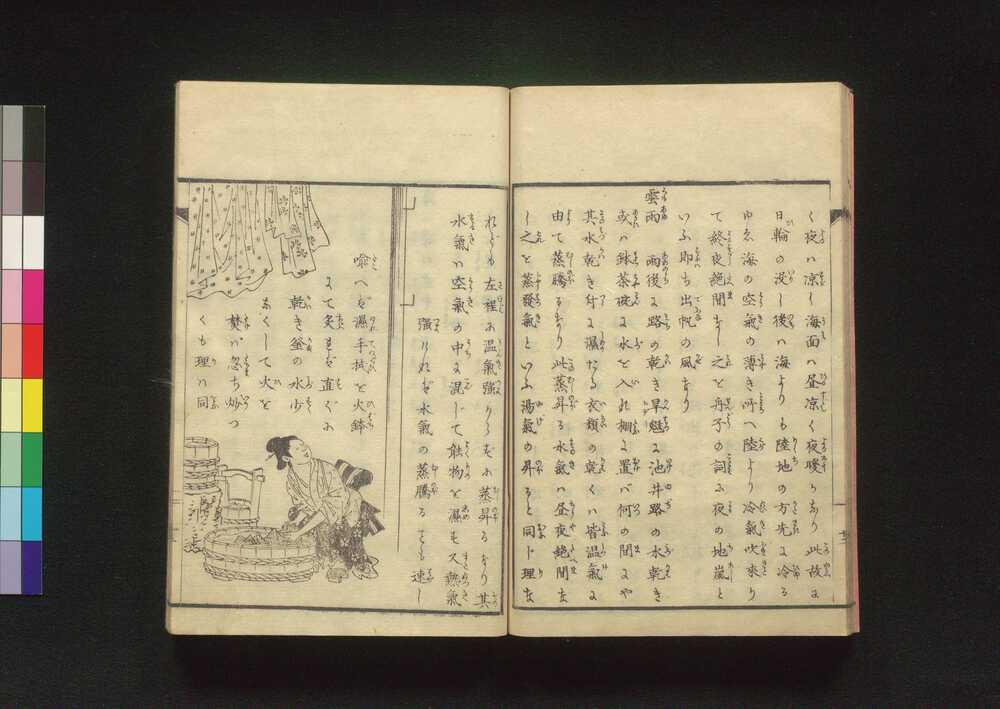 く夜ハ涼し海面ハ昼凉く夜暖りあり此故に
日輪の没し後ハ海よりも陸地の方先に冷る
ゆゑ海の空氣の薄き所へ陸より冷氣吹來り
て終夜絶間なし之を舟子の詞に夜の地嵐と
いふ即ち出帆の風なり
雲雨　雨後に路の乾き旱魃に池井路の水乾き
或ハ鉢茶碗に水を入れ棚に置バ何の間にや
其水乾き付に濕たる衣類の乾くハ皆温氣に
由て蒸騰るなり此蒸昇る水氣ハ昼夜絶間な
し之を蒸發氣といふ湯氣の昇ると同ト理な
れども左程に温氣強からざるに蒸昇るなり其
水氣ハ空氣の中に混じて能物を濕もス熱氣
強けれバ水氣の蒸騰るも速し
喩へバ濕手拭を火鉢
にて炙れバ直ぐに
乾き釜の水少
なくして火を
焚バ忽ち炒つ
くも理ハ同